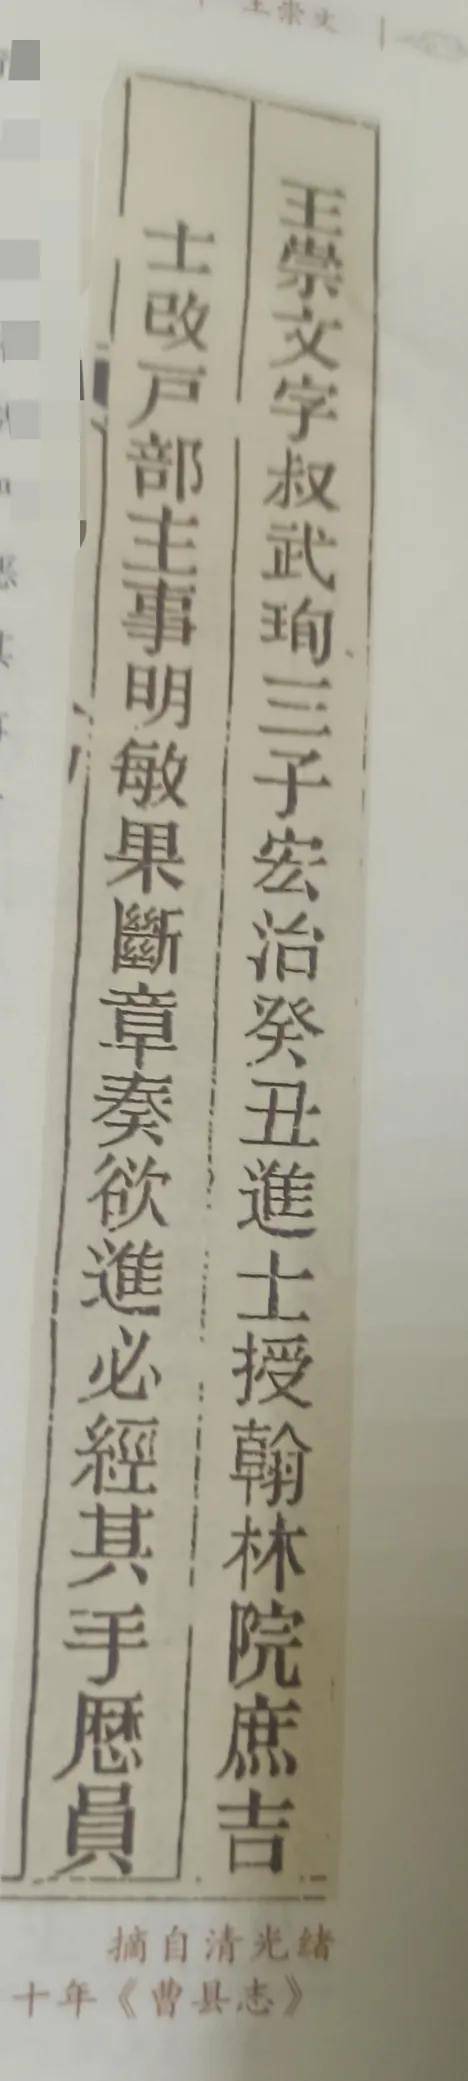 王崇文
王崇文字叔武珣三子宏治癸丑進士授翰林院庶吉
士改戸部主事明敏果斷章奏欲進必經其手歴員
摘自清光绪
十年《曹县志》